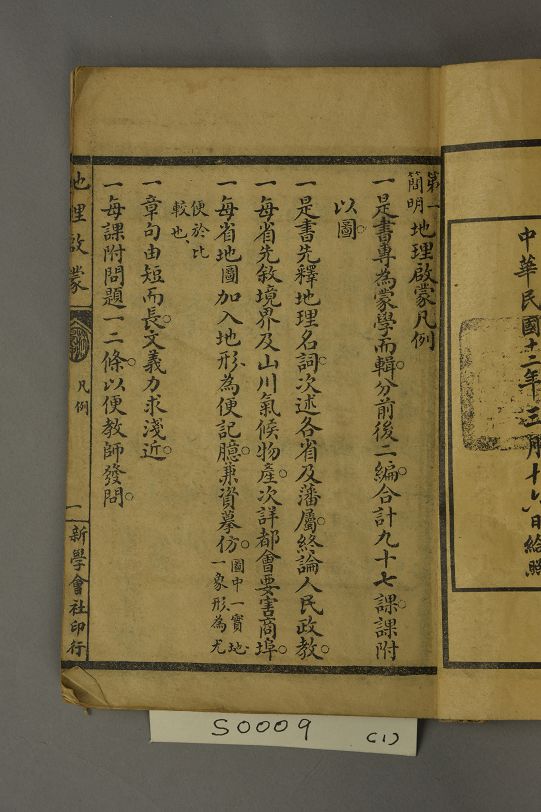 中華民國十二年三月十六日給照
第一簡明地理啟蒙凡例
一是書專為蒙學而輯。分前後二編。合計九十七課。課附
以圖。
一是書先釋地理名詞。次述各省及藩屬。終論人民政教。
一每省先敘境界及山川氣候物產。次詳都會要害商埠。
一每省地圖加入地形。為便記臆。兼資摹仿。圖中一實地一象形為尤
便於比較也、
一章句由短而長。文義力求淺近。
一每課附問題一二條。以便教師發問。
地理啟蒙
凡例
一
新學會社印行
S0009 (1)